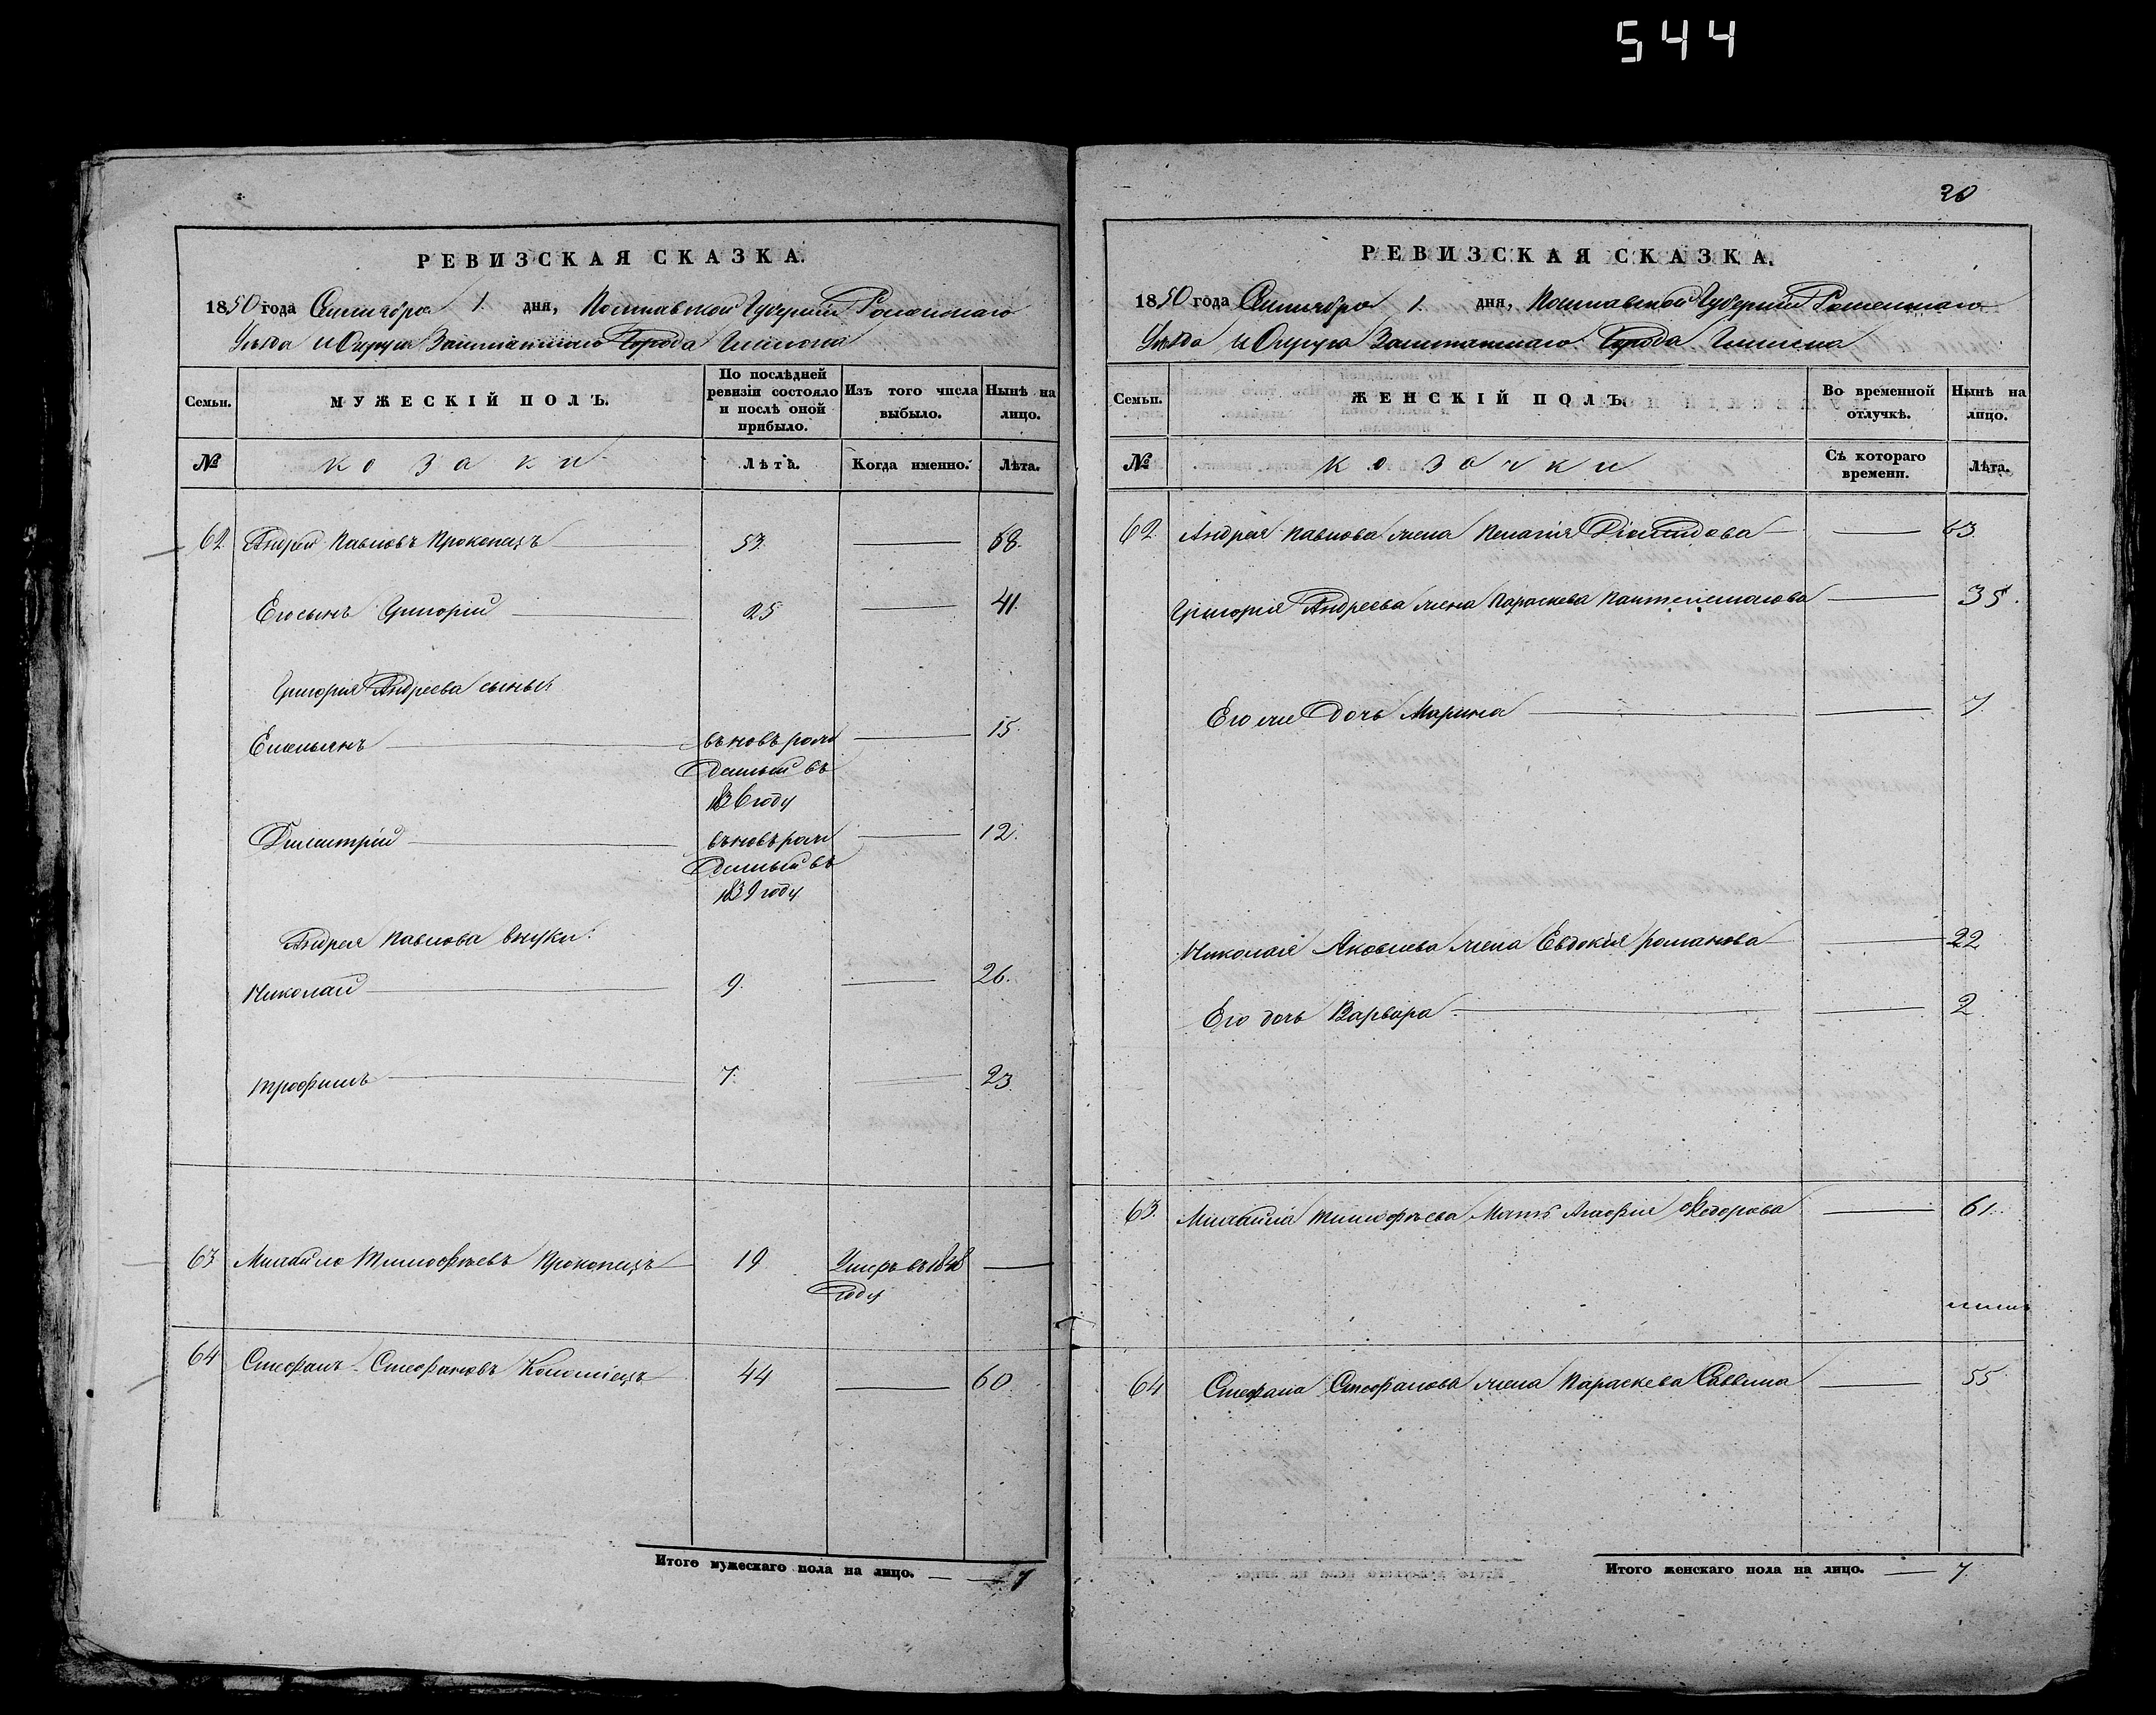 544
РЕВИЗСКАЯ СКАЗКА.
1850 года Сентября 1. дня, Полтавской Губерніи Роменскаго
Уѣзда и Округа Заштатнаго Города Глинска
Семьи. МУЖЕСКІЙ ПОЛЪ. По послѣдней ревизіи состояло и послѣ оной прибыло. Изъ того числа выбыло. Нынѣ на лицо.
№ козаки Лѣта. Когда именно. Лѣта.
62 Андрей Павловъ Прокопецъ 53. 68.
Его сынъ Григорій 25 41.
Григорія Андреева сыны
Емельянъ вновь рож 15.
денный въ
1836 году
Димитрій вновь рож 12.
денный въ
1839 году
Андрея Павлова внуки:
Николай 9. 26.
Трофимъ 7. 23.
63 Михайло Тимофѣевъ Прокопецъ 19 Умеръ въ 1848
году
64 Стефанъ Стефановъ Коломіецъ 44 60.
Итого мужескаго пола на лицо. 7
20
РЕВИЗСКАЯ СКАЗКА.
1850 года Сентября 1. дня, Полтавской Губерніи Роменскаго
Уѣзда и Округа Заштатнаго Города Глинска
Семьи. ЖЕНСКІЙ ПОЛЪ. Во временной отлучкѣ. Нынѣ на лицо.
№ козачки Съ котораго времени. Лѣта.
62 Андрея Павлова жена Пелагія Діомидова 63.
Григорія Андреева жена Параскева Пантелемонова 35.
Его же дочь Марина 7.
Николая Яковлева жена Евдокія Романова 22
Его дочь Варвара 2
63. Михайла Тимофѣева Мать Агафія Федорова 61.
64 Стефана Стефанова жена Параскева Саввина 55
Итого женскаго пола на лицо. 7